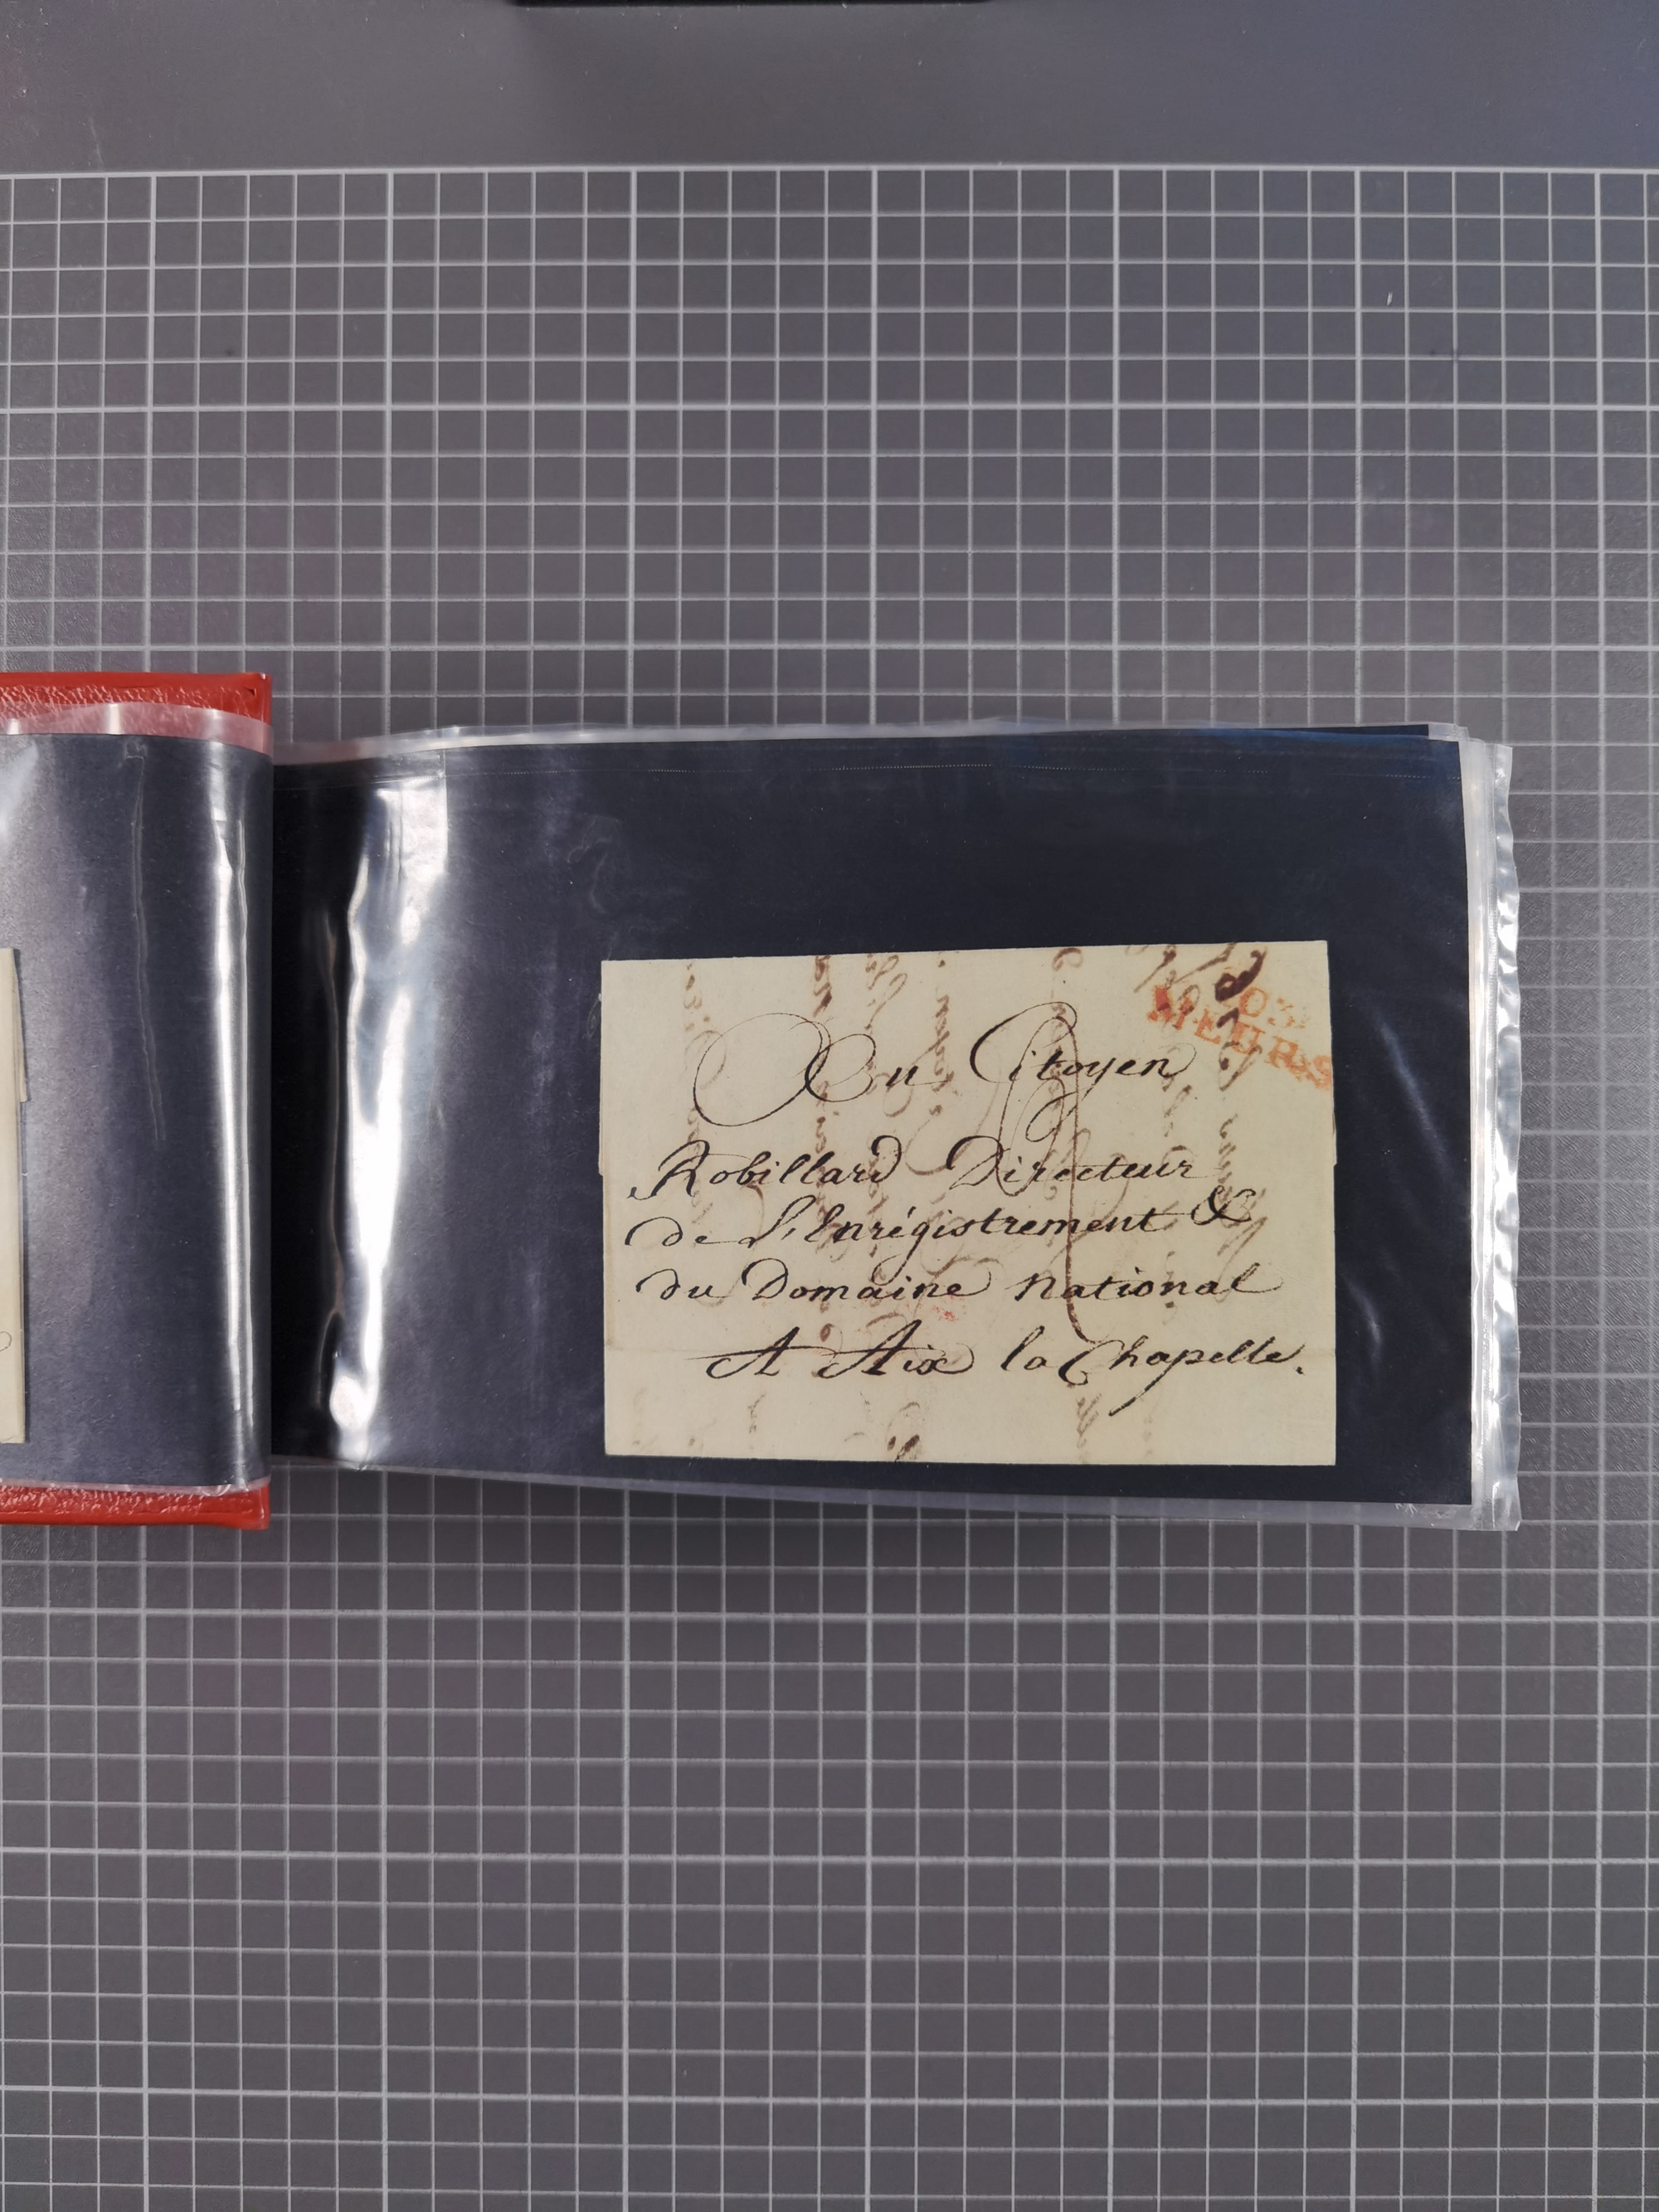 103
MEURS
Au Citoyen
Robillard Directeur
de L'Enrégistrement &
du Domaine national
A Aix la Chapelle.